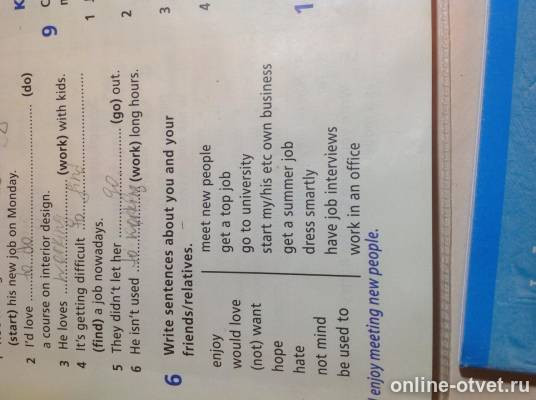 (start) his new job on Monday.
2 I'd love ........ to do ........ (do)
a course on interior design.
3 He loves ........ (work) with kids.
4 It's getting difficult .. to find ..
(find) a job nowadays.
5 They didn't let her .... go .... (go) out.
6 He isn't used .. to working .. (work) long hours.
6 Write sentences about you and your
friends/relatives.
enjoy
would love
(not) want
hope
hate
not mind
be used to
meet new people
get a top job
go to university
start my/his etc own business
get a summer job
dress smartly
have job interviews
work in an office
I enjoy meeting new people.
9
1
2
3
4
1
K
online-otvet.ru